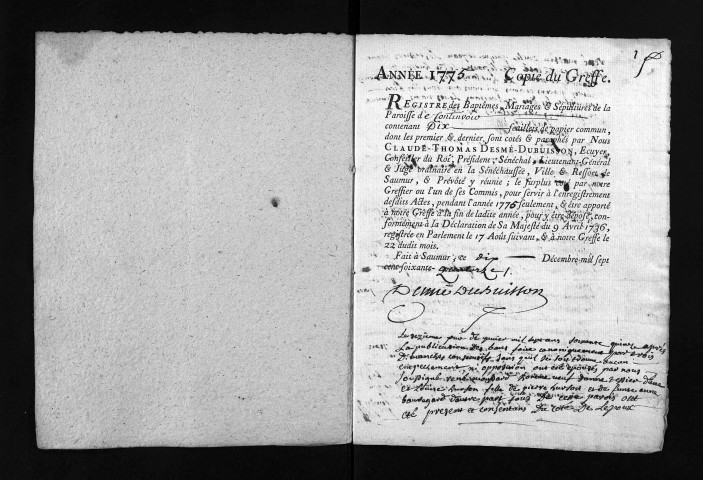 1
ANNÉE 1775 Copie du Greffe.
REGISTRE des Baptêmes, Mariages & Sépultures de la
Paroisse d'e Continvoir
contenant Dix feuillets de papier commun,
dont les premier & dernier, sont cotés & paraphés par Nous
CLAUDE-THOMAS DESMÉ-DUBUISSON, Ecuyer,
Conseiller du Roi, Président, Sénéchal, Lieutenant-Général
& Juge ordinaire en la Sénéchaussée, Ville & Ressort de
Saumur, & Prévôté y réunie ; le surplus coté par notre
Greffier ou l'un de ses Commis, pour servir à l'enregistrement
desdits Actes, pendant l'année 1775 seulement, & être apporté
à notre Greffe à la fin de ladite année, pour y être déposé, con-
formément à la Déclaration de Sa Majesté du 9 Avril 1736,
registrée en Parlement le 17 Août suivant, & à notre Greffe le
22 dudit mois.
Fait à Saumur, ce dix Décembre mil sept
cent soixante-quatorze /.
Desmé Dubuisson
Le seizieme jour de janvier mil sept cens soixante quinze après
La publication des bans faite canoniquement par trois
Dimanches consecutifs sans quil ait aucun
empeschement ni opposition ont été épousés par nous
soussigné
et fille de pierre et de
d'autre part tous De cette paroisse ont
été present et consentans Du coté De Lepoux